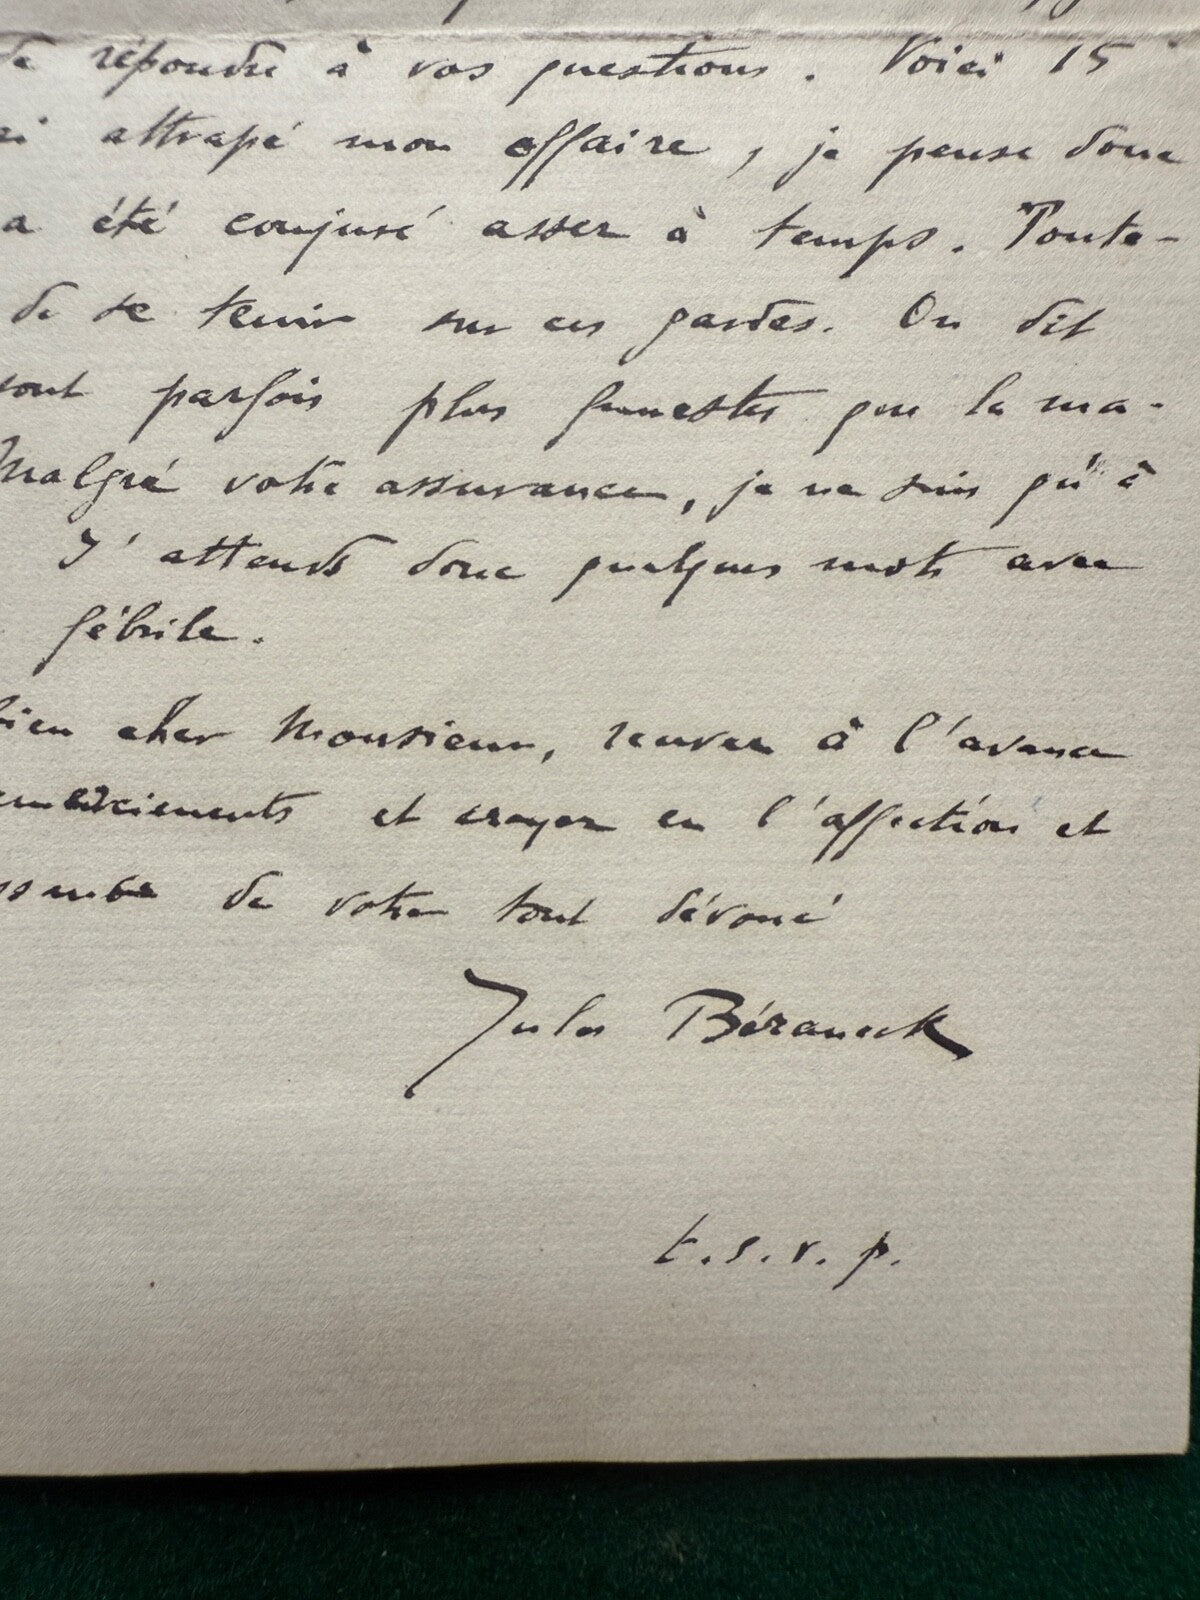 de répondre à vos questions. Voici 15
attrapé mon affaire, je pense donc
a été conjuré assez à temps. Toute-
de se tenir sur ses gardes. On dit
sont parfois plus funestes que la ma-
Malgré votre assurance, je ne suis qu'à
J'attends donc quelques mots avec
fébrile.
bien cher Monsieur, recevez à l'avance
et croyez en l'affection et
de votre tout dévoué
Jules Béraneck
t.s.v.p.